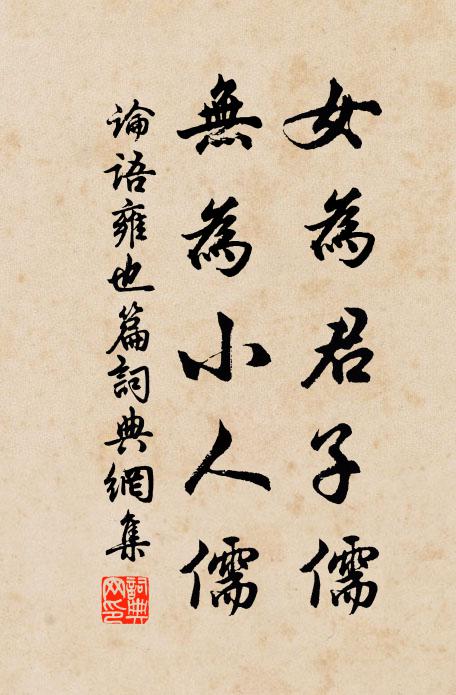 女為君子儒
無為小人儒
論語雍也篇詞典網集
詞典
网印